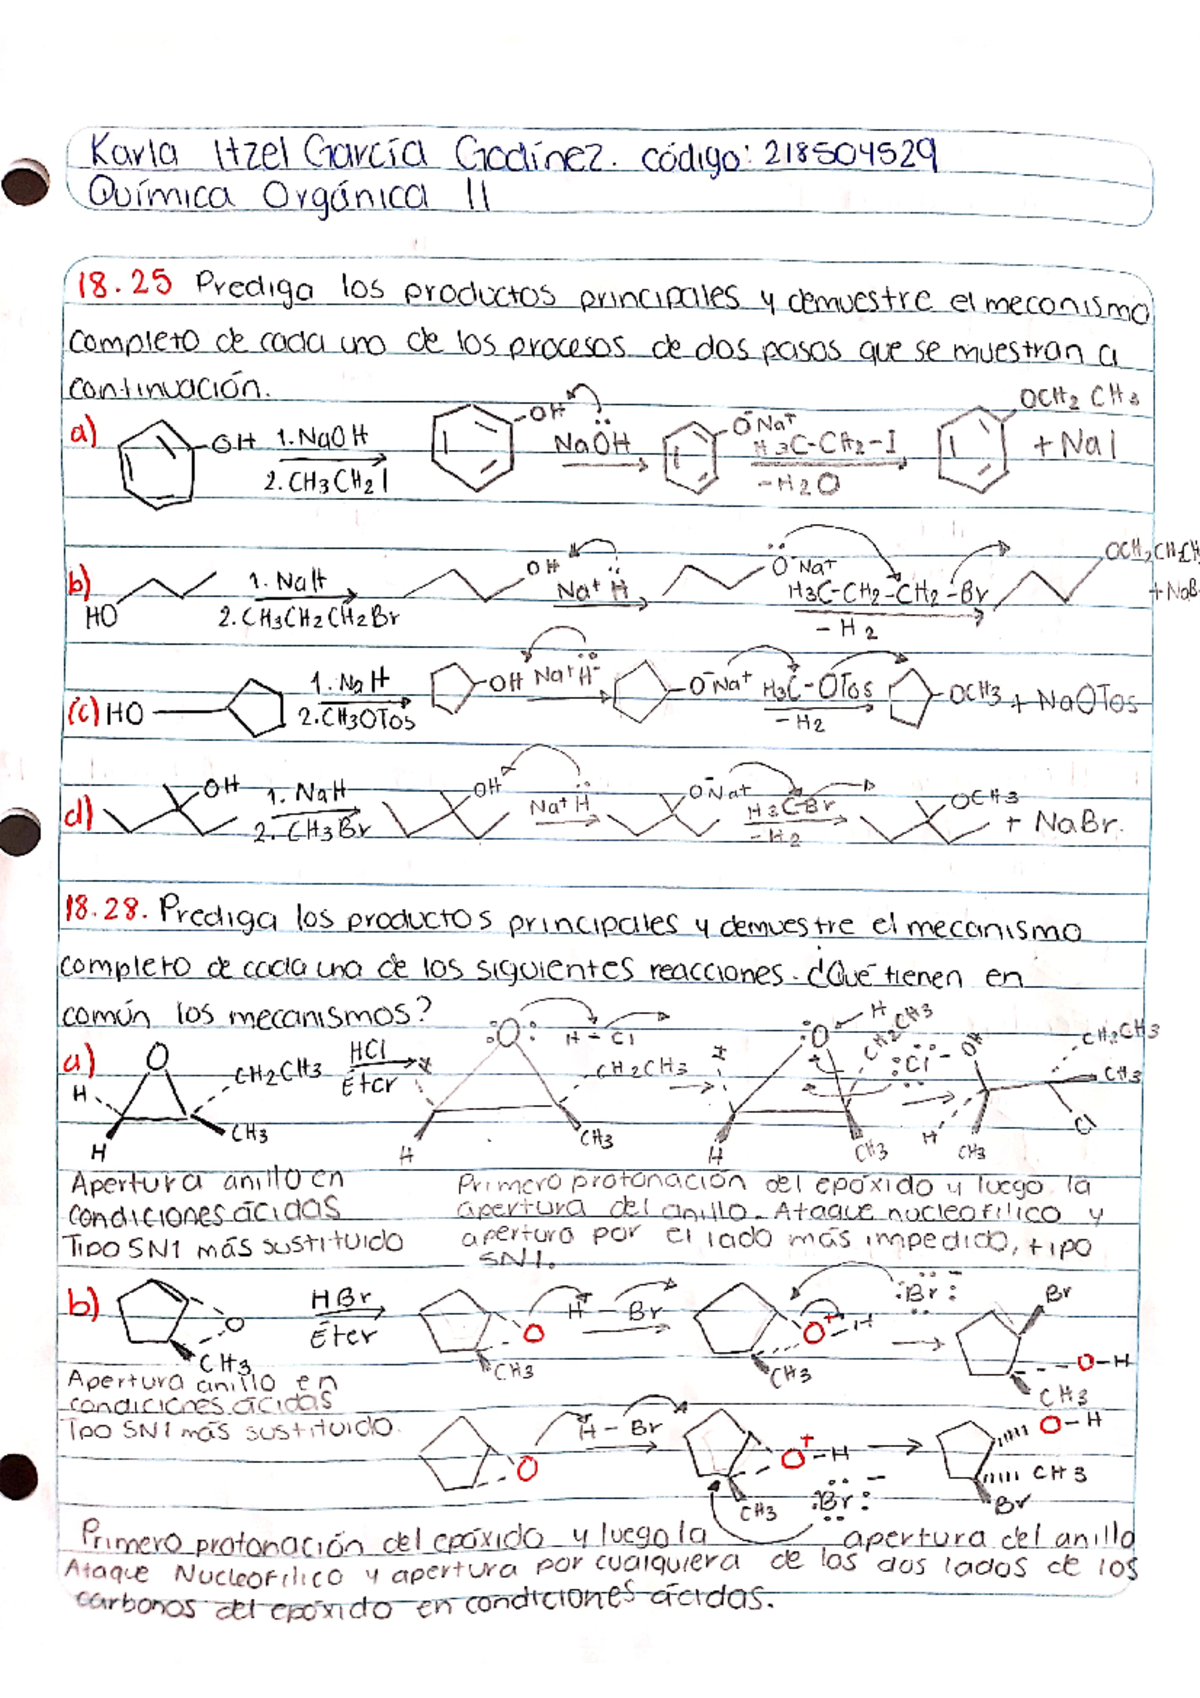 Karla Itzel García Godínez. código: 218504529
Química Orgánica II
18.25 Prediga los productos principales y demuestre el mecanismo
completo de cada uno de los procesos de dos pasos que se muestran a
continuación.
a) OH 1. NaOH 2. CH3CH2I OH NaOH O⁻Na⁺ H3C-CH2-I -H2O OCH2CH3 + NaI
b) HO 1. NaH 2. CH3CH2CH2Br OH Na⁺ H O⁻Na⁺ H3C-CH2-CH2-Br -H2 OCH2CH2CH + NaB
(c) HO 1. NaH 2. CH3OTos OH Na⁺H⁻ O⁻Na⁺ H3C-OTos -H2 OCH3 + NaOTos
d) OH 1. NaH 2. CH3Br OH Na⁺ H O⁻Na⁺ H3C-Br -H2 OCH3 + NaBr.
18.28. Prediga los productos principales y demuestre el mecanismo
completo de cada una de los siguientes reacciones. ¿Qué tienen en
común los mecanismos?
a) O H H CH2CH3 CH3 HCl Eter O H-Cl H CH2CH3 CH3 O H H CH2CH3 CH3 Cl OH H CH3 CH2CH3 CH3 Cl
Apertura anillo en
condiciones ácidas
Tipo SN1 más sustituido
Primero protonación del epóxido y luego la
apertura del anillo. Ataque nucleofílico y
apertura por el lado más impedido, tipo
SN1.
b) O CH3 HBr Eter O CH3 H-Br O⁺-H CH3 :Br:⁻ Br O-H CH3
Apertura anillo en
condiciones ácidas
Tpo SN1 más sustituido.
O H-Br O⁺-H CH3 :Br:⁻ O-H CH3 Br
Primero protonación del epóxido y luego la apertura del anillo
Ataque Nucleofílico y apertura por cualquiera de los dos lados de los
carbonos del epóxido en condiciones ácidas.